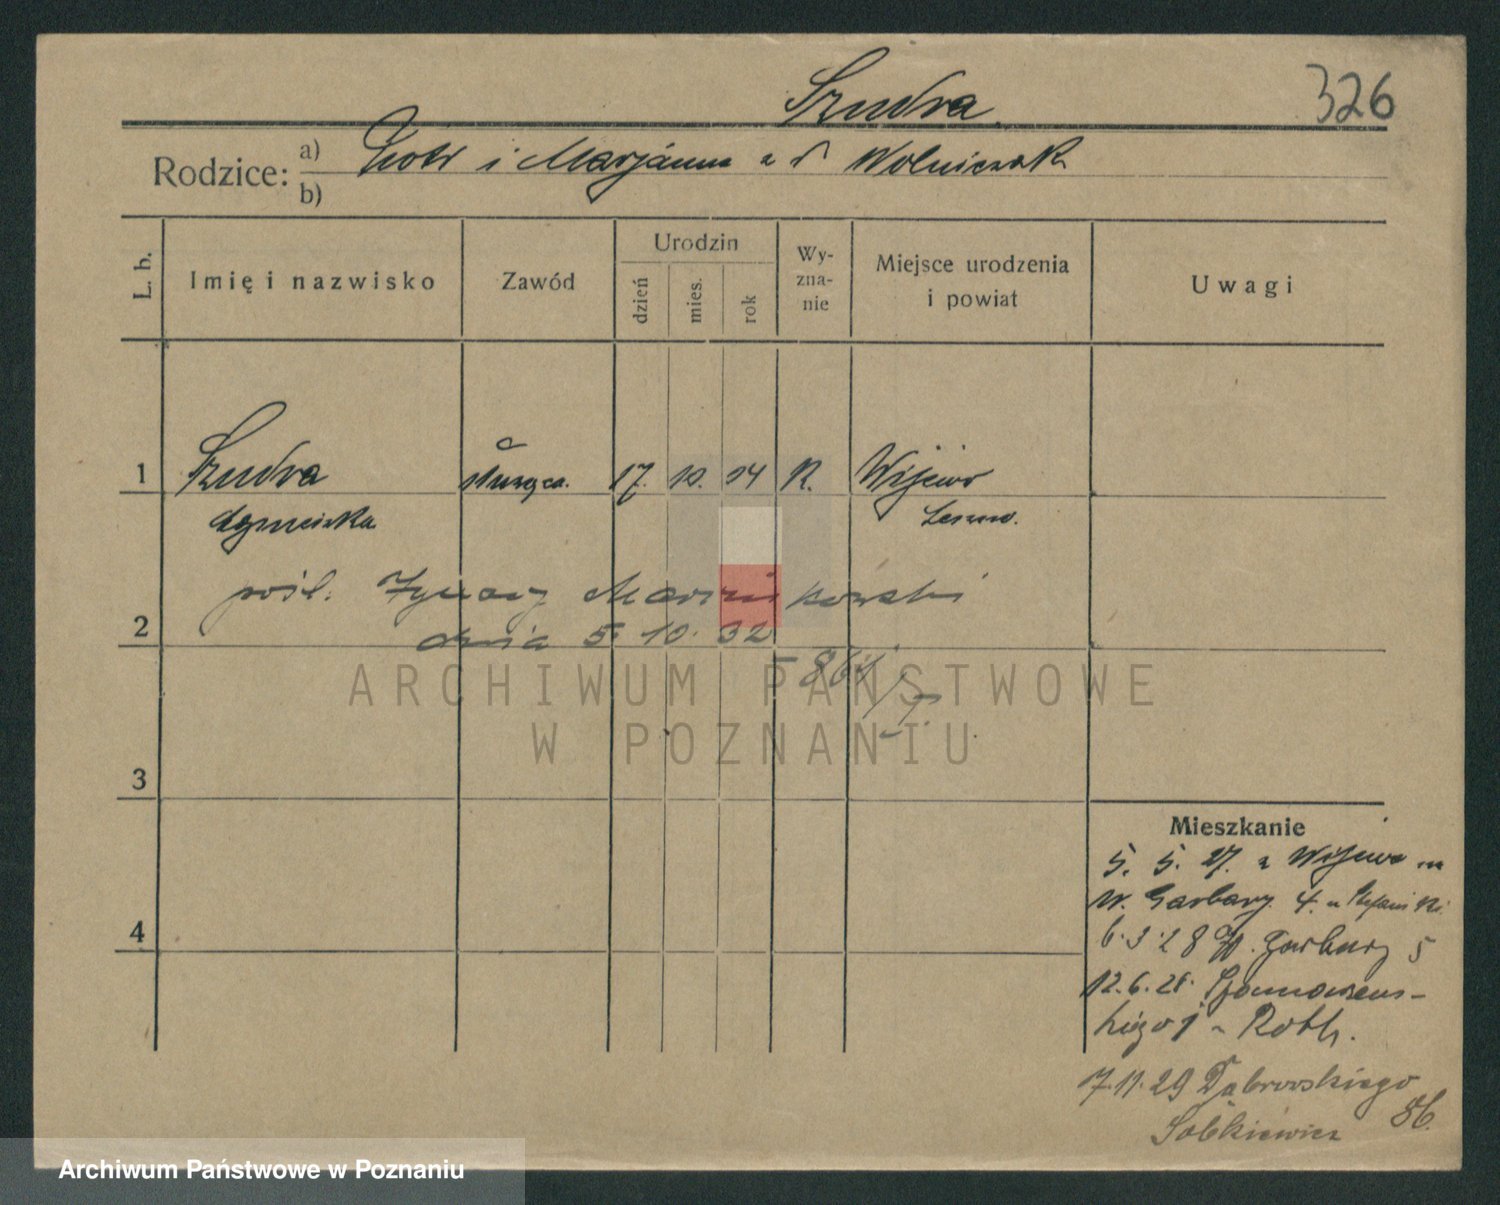 Szudra
326
Rodzice: a) Piotr i Marjanna z d Wolniczak
b)
L. b.
Imię i nazwisko
Zawód
Urodzin
dzień
mies.
rok
Wy-
zna-
nie
Miejsce urodzenia
i powiat
Uwagi
1 Szudra służąca. 17. 10. 14 R. Wijewo
Agnieszka Leszno.
pośl. Ignacy Marcinkowski
2 dnia 5. 10. 32
ARCHIWUM PAŃSTWOWE
W POZNANIU
3
4
Mieszkanie
5. 5. 27. z Wijewo
W. Garbary. 4.
6.3.28 W. Garbary 5
12.6.28.
kiego 1 Roth.
7.11.29 Dąbrowskiego
Sobkiewicz 86.
Archiwum Państwowe w Poznaniu